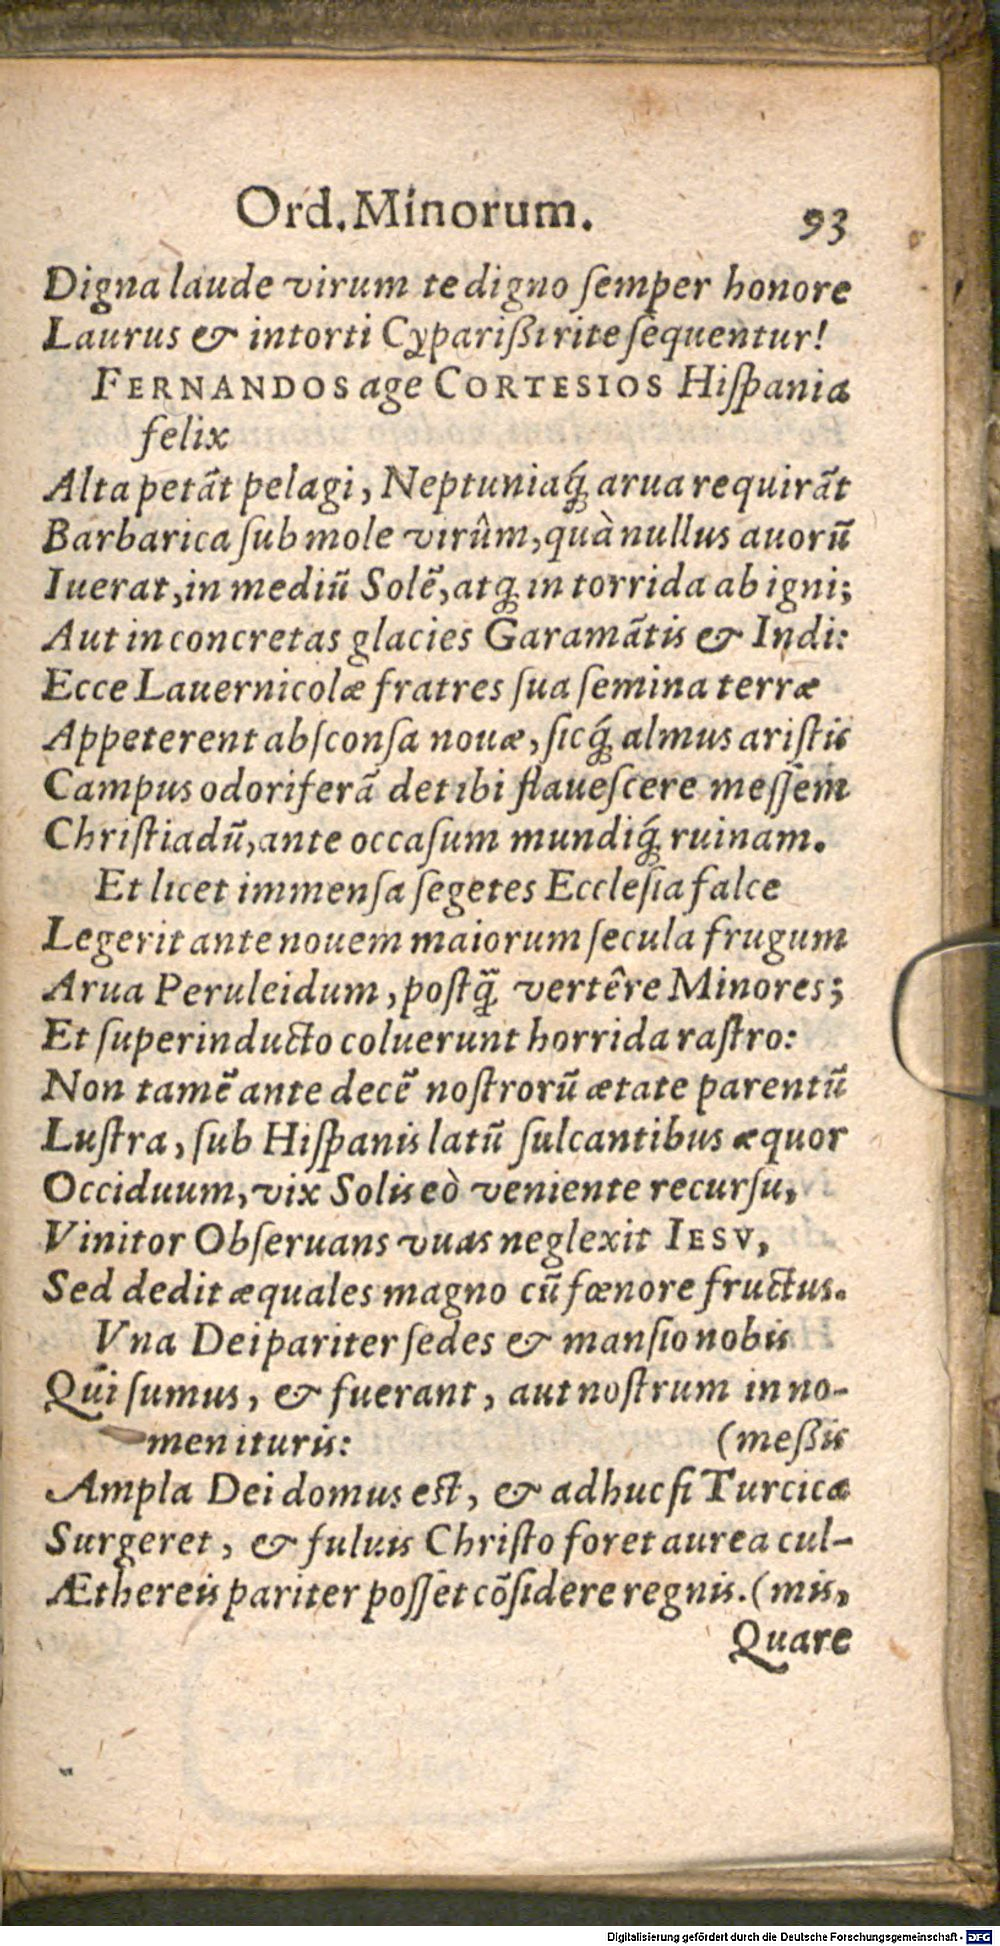 Ord. Minorum. 93
Digna laude virum te digno ſemper honore
Laurus & intorti Cypariſsi rite ſequentur!
FERNANDOS age CORTESIOS Hiſpania
felix
Alta petāt pelagi, Neptuniaq́; arua requirāt
Barbarica ſub mole virûm, quà nullus auorū
Iuerat, in mediū Solē, atq; in torrida ab igni;
Aut in concretas glacies Garamātis & Indi:
Ecce Lauernicolæ fratres ſua ſemina terræ
Appeterent abſconſa nouæ, ſicq́; almus ariſtis
Campus odoriferā det ibi flaueſcere meſſem
Chriſtiadū, ante occaſum mundiq́; ruinam.
Et licet immenſa ſegetes Eccleſia falce
Legerit ante nouem maiorum ſecula frugum
Arua Peruleidum, poſtq̃ vertêre Minores;
Et ſuperinducto coluerunt horrida raſtro:
Non tamē ante decē noſtrorū ætate parentū
Luſtra, ſub Hiſpanis latū ſulcantibus æquor
Occiduum, vix Solis eò veniente recurſu,
Vinitor Obſeruans vuas neglexit IESV,
Sed dedit æquales magno cū fœnore fructus.
Vna Dei pariter ſedes & manſio nobis
Qui ſumus, & fuerant, aut noſtrum in no-
men ituris: (meſsis
Ampla Dei domus eſt, & adhuc ſi Turcica
Surgeret, & fuluis Chriſto foret aurea cul-
Æthereis pariter poſſet cōſidere regnis. (mis,
Quare
Digitalisierung gefördert durch die Deutsche Forschungsgemeinschaft - DFG